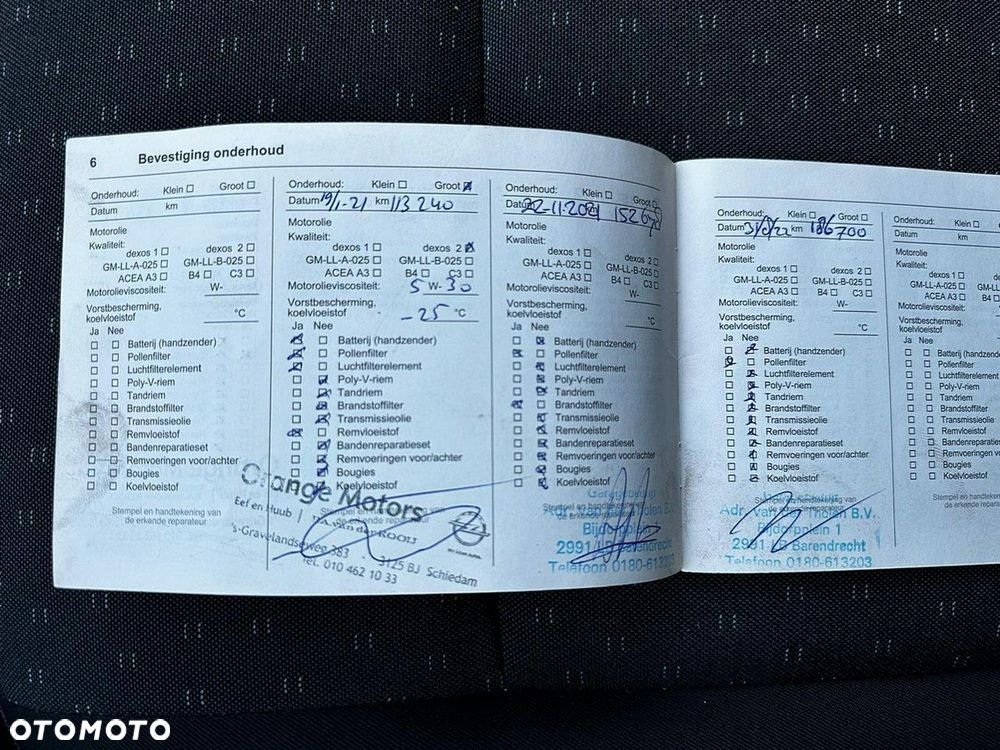 6 Bevestiging onderhoud
Onderhoud: Klein Groot
Datum km
Motorolie
Kwaliteit:
dexos 1 dexos 2
GM-LL-A-025 GM-LL-B-025
ACEA A3 B4 C3
Motorolieviscositeit: W-
Vorstbescherming,
koelvloeistof °C
Ja Nee
Batterij (handzender)
Pollenfilter
Luchtfilterelement
Poly-V-riem
Tandriem
Brandstoffilter
Transmissieolie
Remvloeistof
Bandenreparatieset
Remvoeringen voor/achter
Bougies
Koelvloeistof
Stempel en handtekening van
de erkende reparateur
Onderhoud: Klein Groot
Datum 19/1-21 km 113240
Motorolie
Kwaliteit:
dexos 1 dexos 2
GM-LL-A-025 GM-LL-B-025
ACEA A3 B4 C3
Motorolieviscositeit: 5 W- 30
Vorstbescherming,
koelvloeistof -25 °C
Ja Nee
Batterij (handzender)
Pollenfilter
Luchtfilterelement
Poly-V-riem
Tandriem
Brandstoffilter
Transmissieolie
Remvloeistof
Bandenreparatieset
Remvoeringen voor/achter
Bougies
Koelvloeistof
Orange Motors
Eef en Huub
's-Gravelandseweg 383 3125 BJ Schiedam
Tel. 010 462 10 33
Onderhoud: Klein Groot
Datum 22-11-2021
Motorolie
Kwaliteit:
dexos 1 dexos 2
GM-LL-A-025 GM-LL-B-025
ACEA A3 B4 C3
Motorolieviscositeit: W-
Vorstbescherming,
koelvloeistof °C
Ja Nee
Batterij (handzender)
Pollenfilter
Luchtfilterelement
Poly-V-riem
Tandriem
Brandstoffilter
Transmissieolie
Remvloeistof
Bandenreparatieset
Remvoeringen voor/achter
Bougies
Koelvloeistof
Telefoon 0180-613203
Onderhoud: Klein Groot
Datum km 186700
Motorolie
Kwaliteit:
dexos 1 dexos 2
GM-LL-A-025 GM-LL-B-025
ACEA A3 B4 C3
Motorolieviscositeit: W-
Vorstbescherming,
koelvloeistof °C
Ja Nee
Batterij (handzender)
Pollenfilter
Luchtfilterelement
Poly-V-riem
Tandriem
Brandstoffilter
Transmissieolie
Remvloeistof
Bandenreparatieset
Remvoeringen voor/achter
Bougies
Koelvloeistof
Stempel en handtekening van
de erkende reparateur
Adr. van Tholen B.V.
Bijdorpplein 1
2991 LB Barendrecht
Telefoon 0180-613203
Onderhoud: Klein
Datum km
Motorolie
Kwaliteit:
dexos 1
GM-LL-A-025
ACEA A3
Motorolieviscositeit:
Vorstbescherming,
koelvloeistof
Ja Nee
Batterij (handzender)
Pollenfilter
Luchtfilterelement
Poly-V-riem
Tandriem
Brandstoffilter
Transmissieolie
Remvloeistof
OTOMOTO